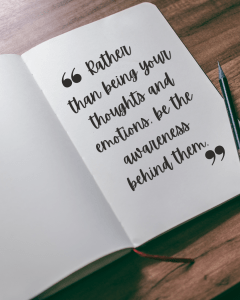 “ Rather
than being your
thoughts and
emotions, be the
awareness
behind them. ”